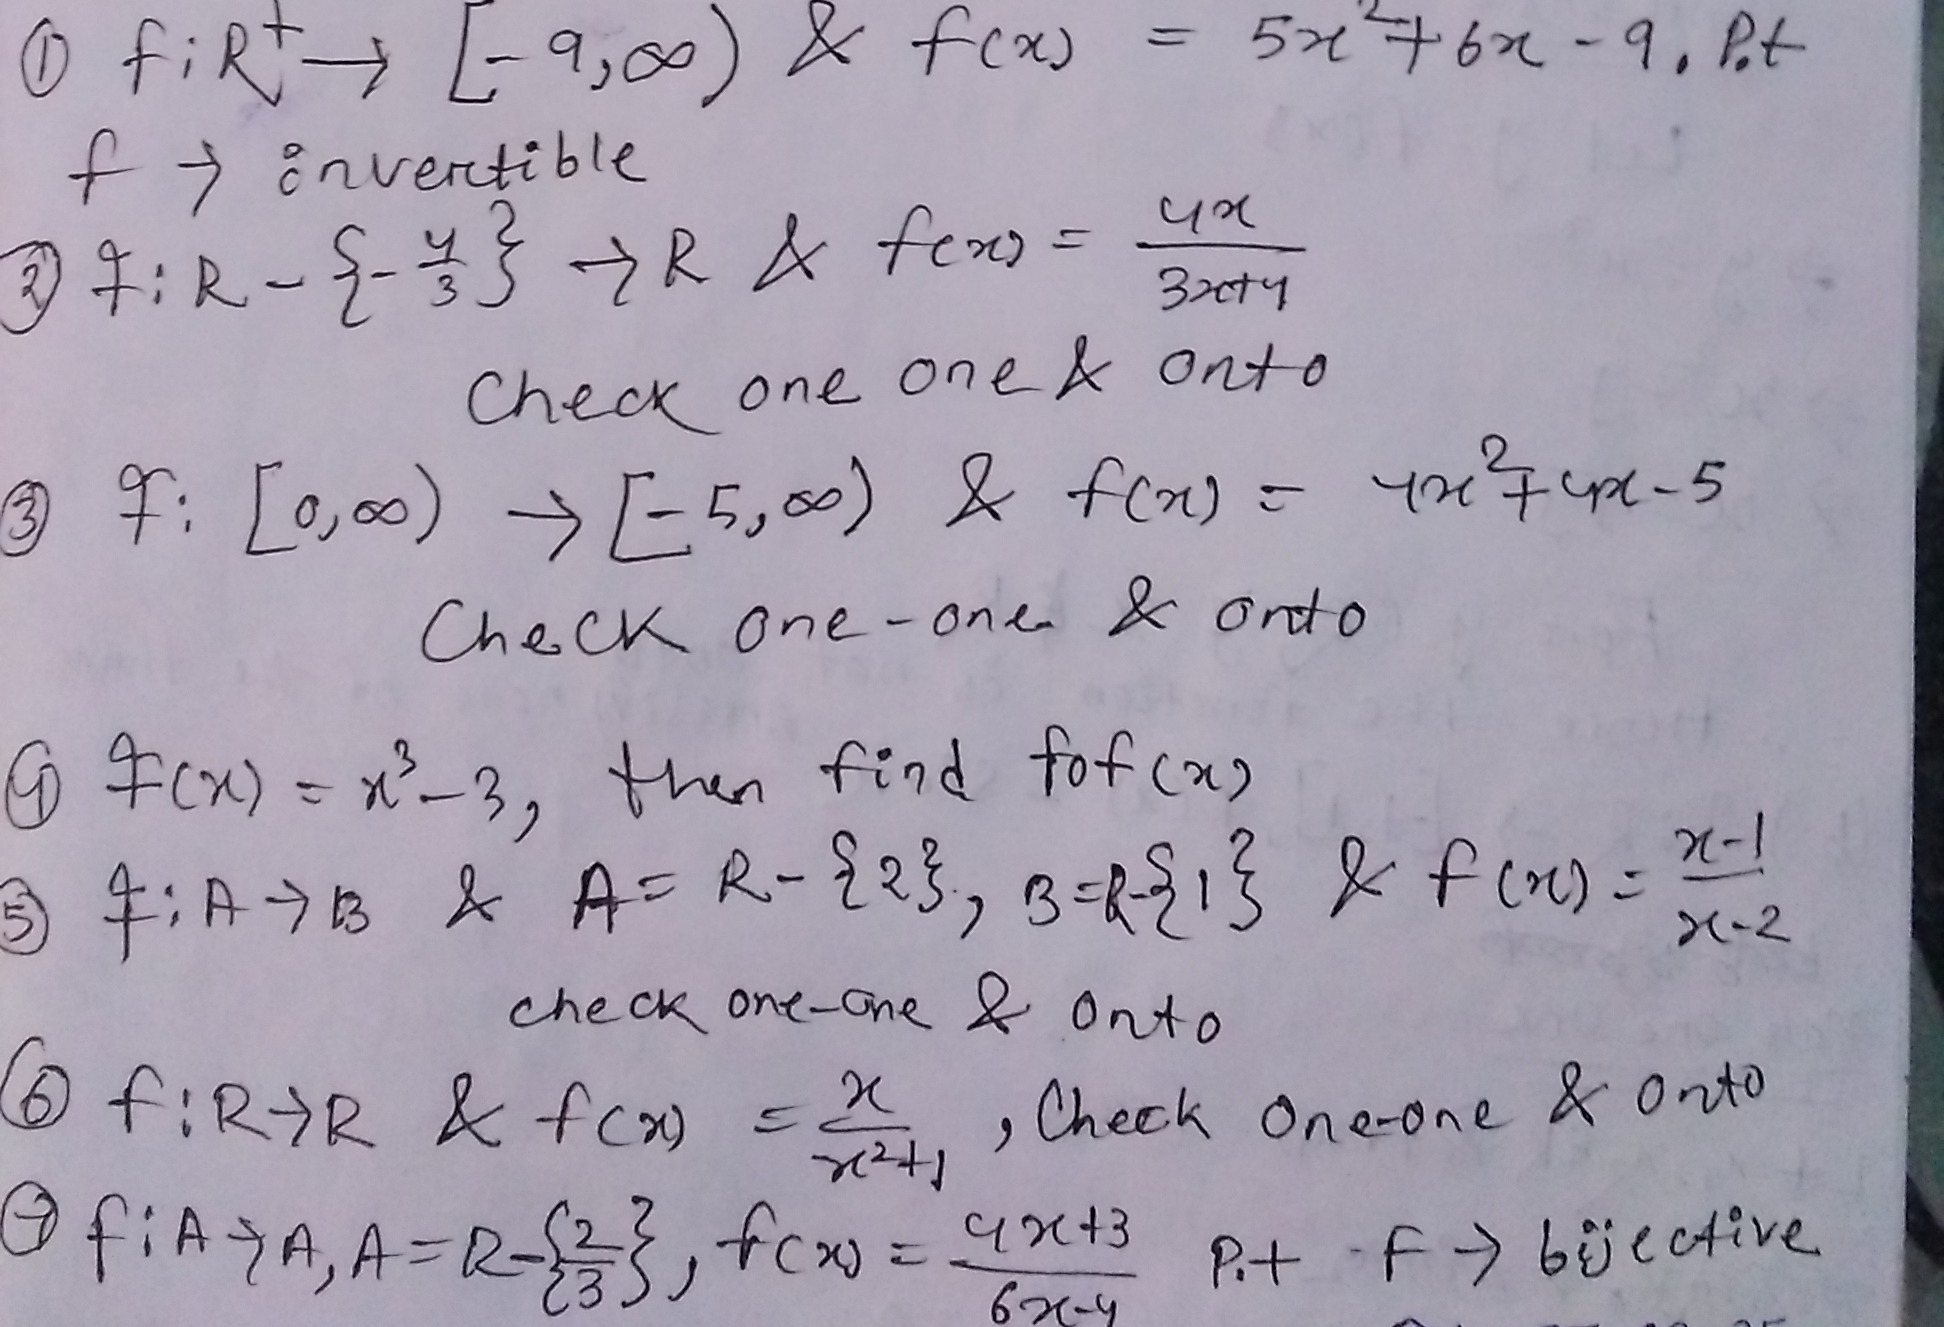 ① f : R⁺ → [-9, ∞) & f(x) = 5x² + 6x - 9. P.t
f → invertible
② f : R - {-4/3} → R & f(x) = 4x/(3x+4)
Check one one & onto
③ f : [0, ∞) → [-5, ∞) & f(x) = 4x² + 4x - 5
Check one-one & onto
④ f(x) = x³ - 3, then find fof(x)
⑤ f : A → B & A = R - {2}, B = R - {1} & f(x) = (x-1)/(x-2)
check one-one & onto
⑥ f : R → R & f(x) = x/(x²+1), Check one-one & onto
⑦ f : A → A, A = R - {2/3}, f(x) = (4x+3)/(6x-4) P.t f → bijective